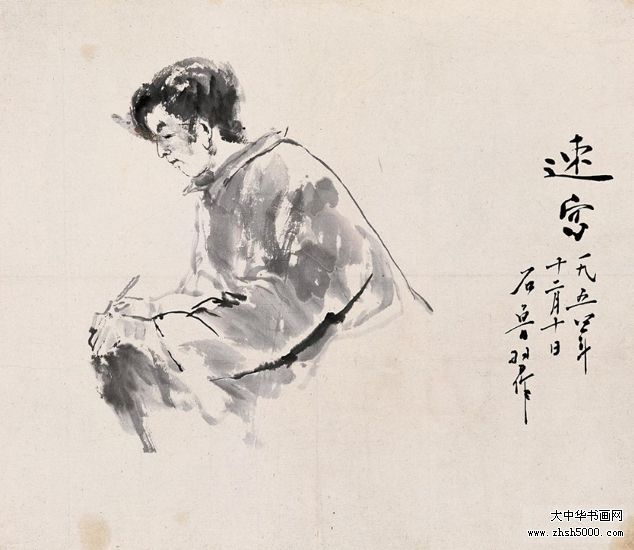 速写
一九五四年
十二月十日
石鲁习作
大中华书画网
www.zhsh5000.com